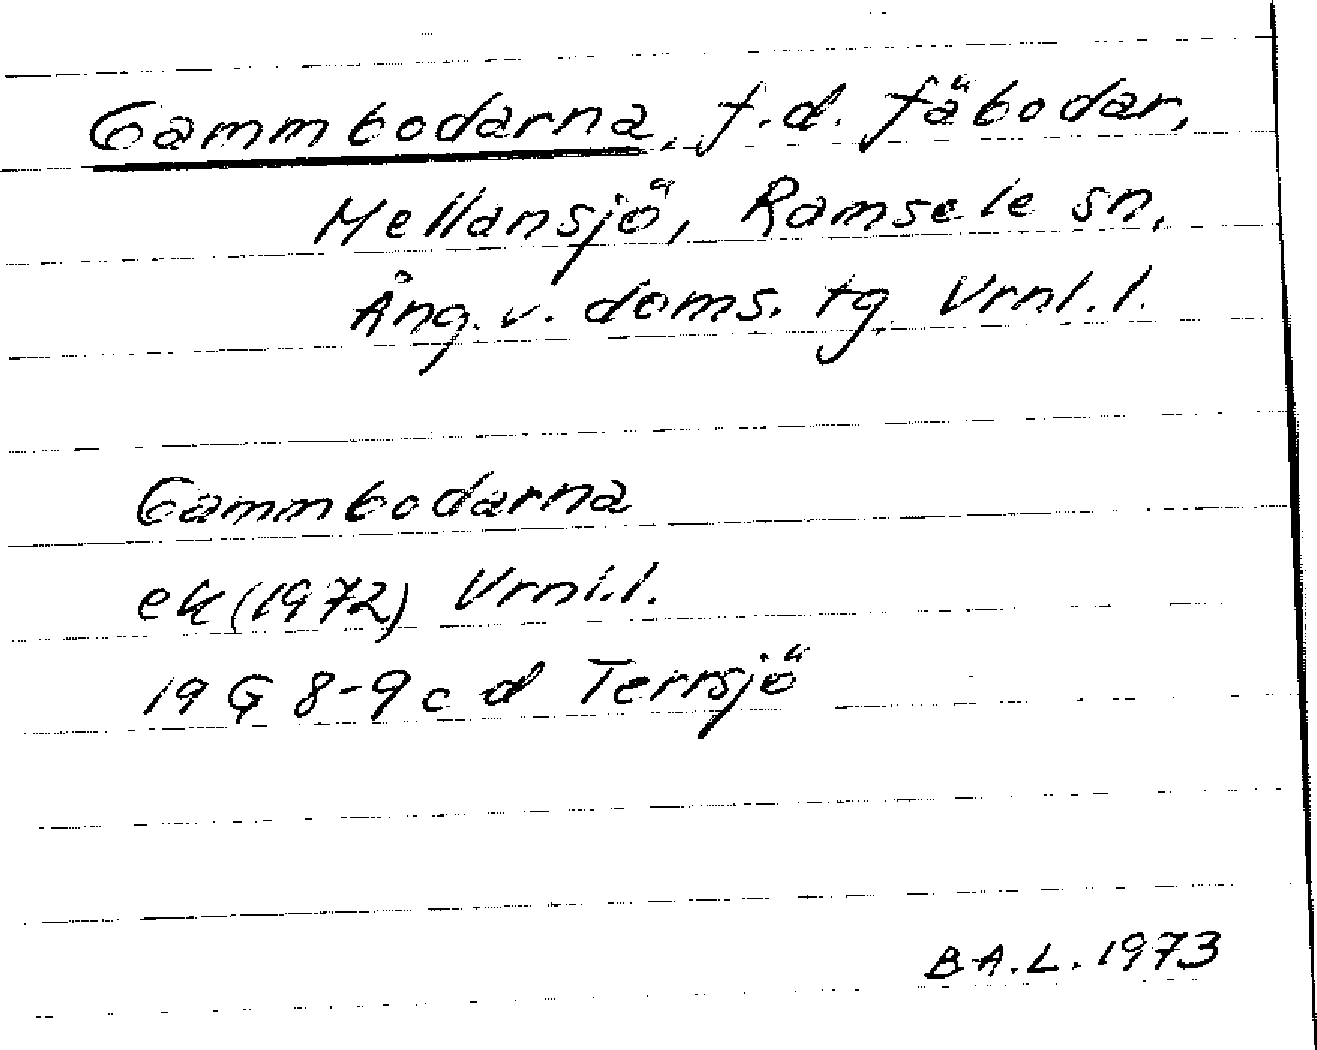 Gammbodarna, f.d. fäbodar,
Mellansjö, Ramsele sn,
Ång. v. doms. tg. Vrnl. l.
Gammbodarna
ek (1972) Vrnl. l.
19 G 8-9 c d Terrsjö
B-A.L. 1973